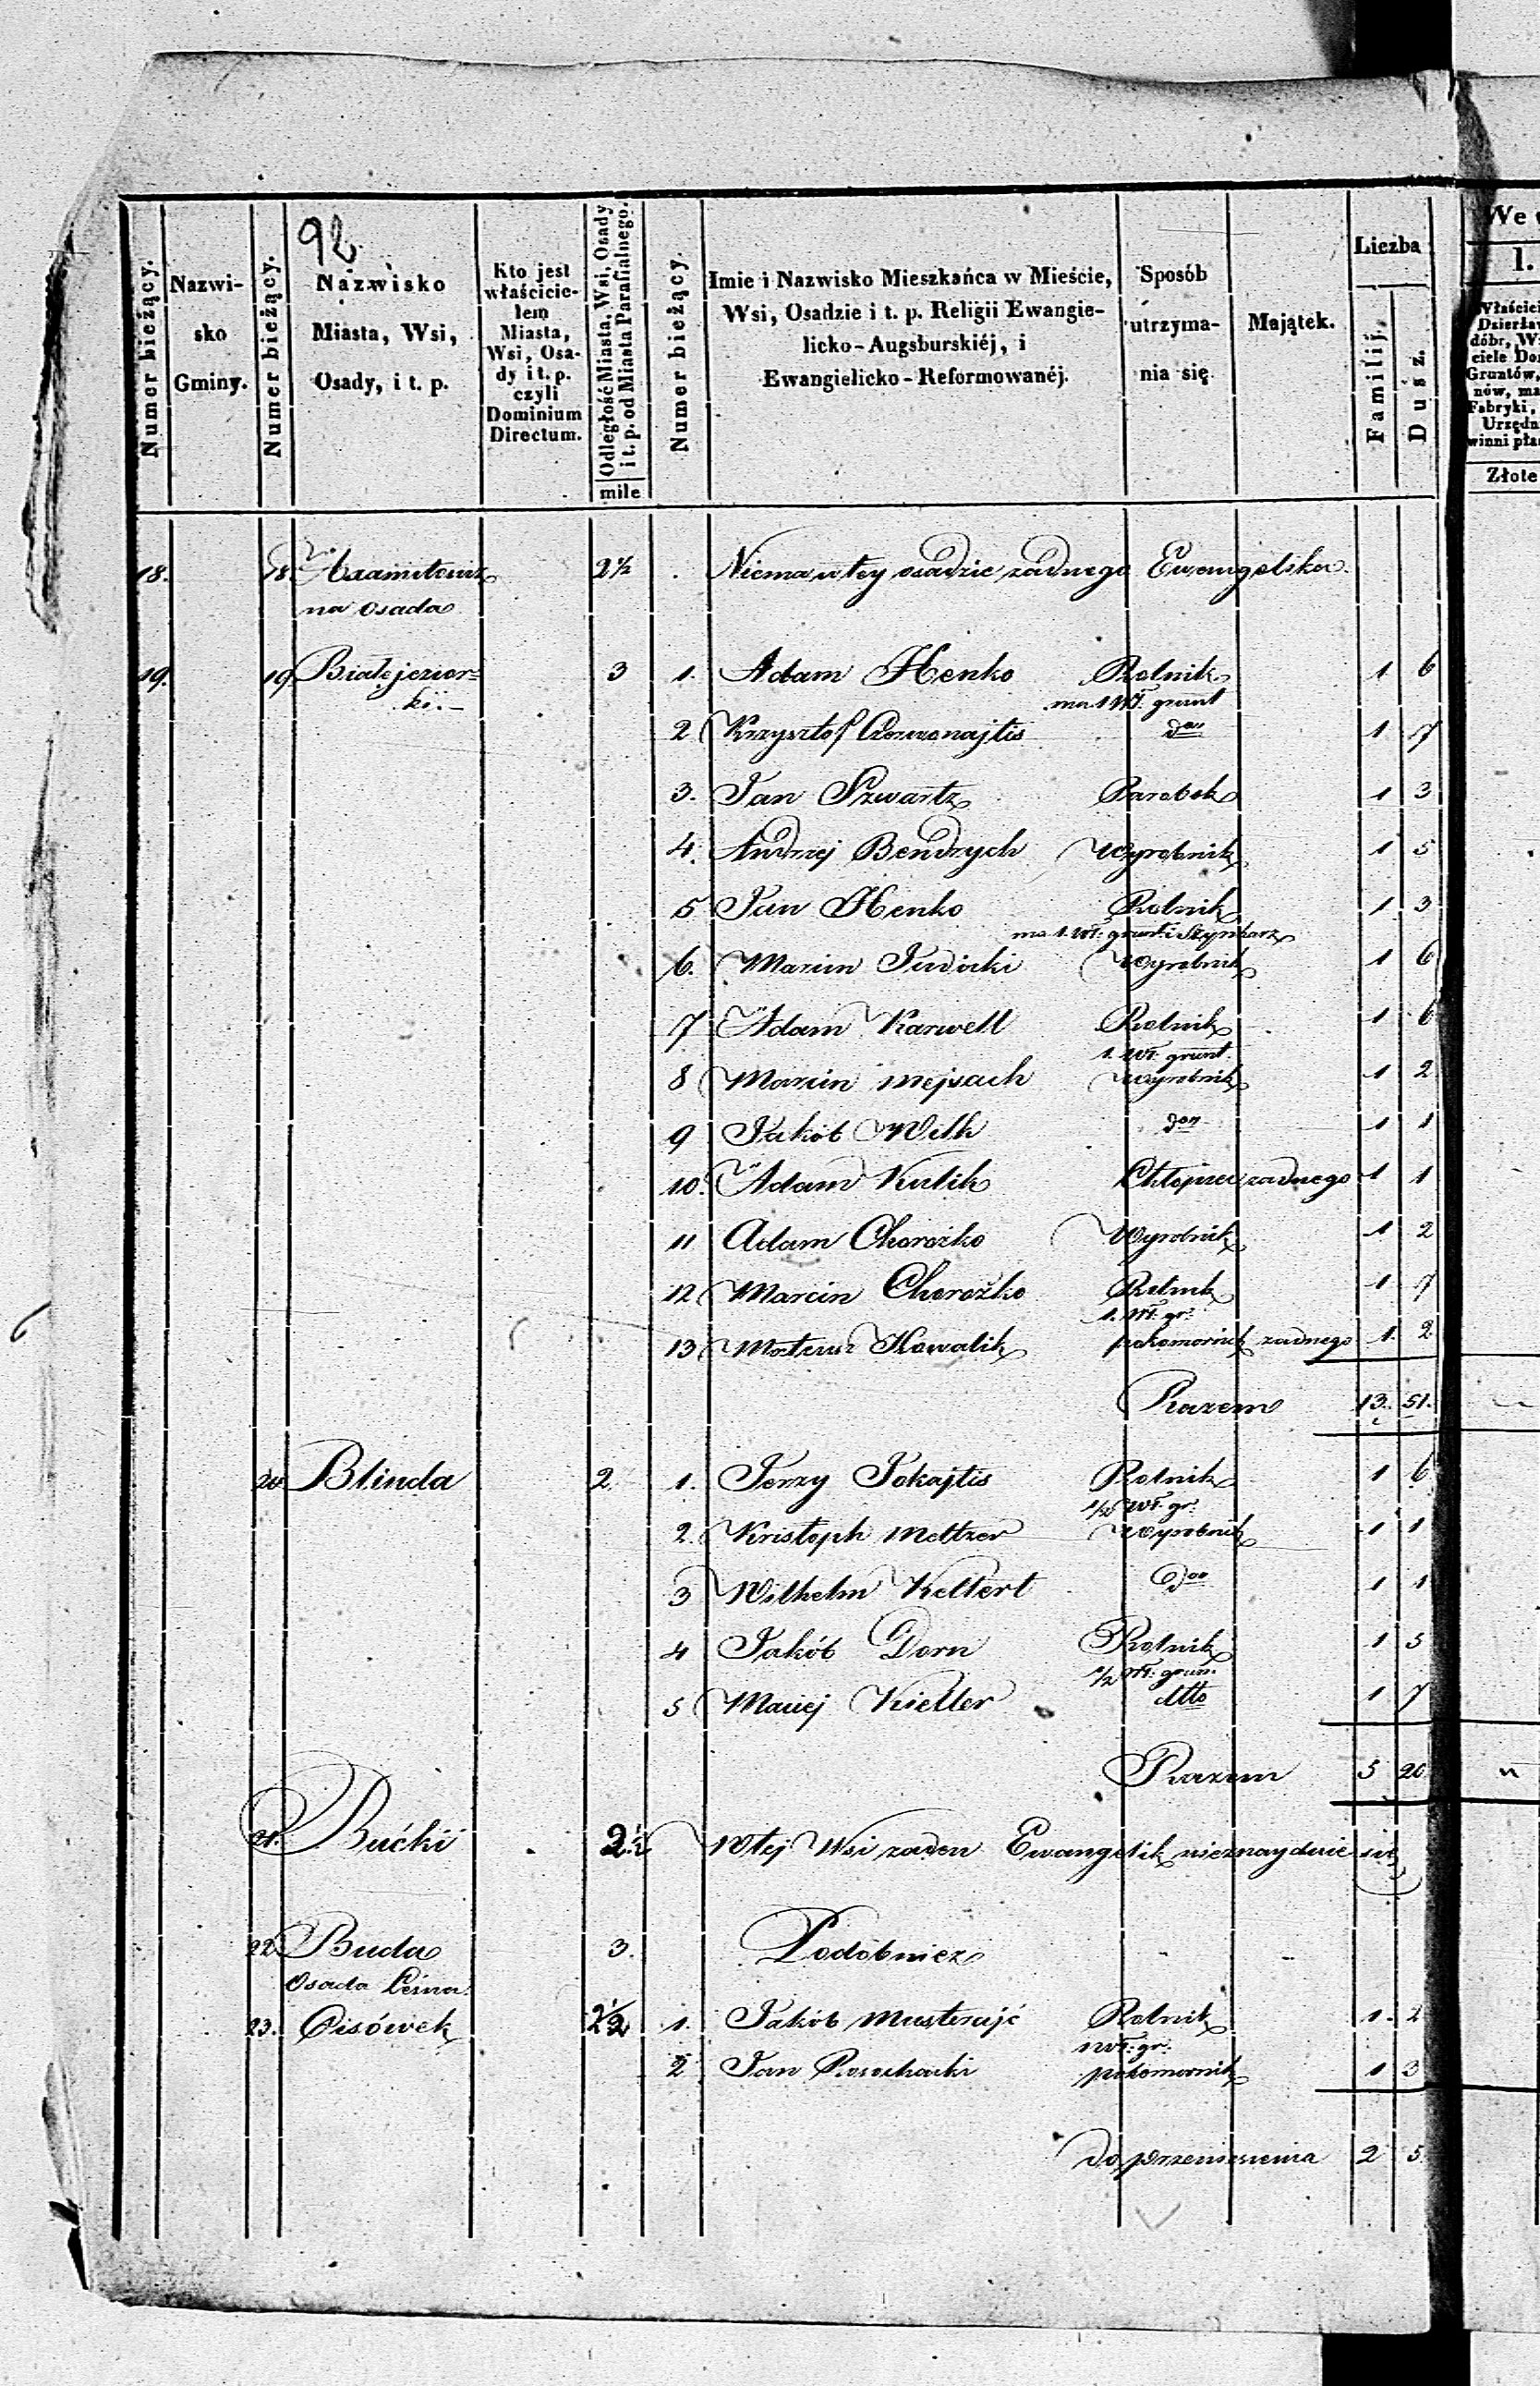 92
Numer bieżący.
Nazwisko Gminy.
Numer bieżący.
Nazwisko Miasta, Wsi, Osady, i t. p.
Kto jest właścicielem Miasta, Wsi, Osady i t. p. czyli Dominium Directum.
Odległość Miasta, Wsi, Osady i t. p. od Miasta Parafialnego.
mile
Numer bieżący.
Imie i Nazwisko Mieszkańca w Mieście, Wsi, Osadzie i t. p. Religii Ewangielicko-Augsburskiéj, i Ewangielicko-Reformowanéj.
Sposób utrzymania się.
Majątek.
Liczba
Familij.
Dusz.
We
1.
Złote
18. 18. 2½ Niema w tey osadzie zadnego Ewangelika.
na osada
19. 19 Białejezior= 3 1. Adam Henko Rolnik 1 6
ki.- ma 1 Wł. grunt
2 Krzysztof don 1 7
3. Jan Szwartz Parobek 1 3
4. Andrzej Bendrych Wyrobnik 1 5
5 Jan Henko Rolnik 1 3
ma 1. Wł. grunt i Szynkarz
6. Marcin Judicki Wyrobnik 1 6
7 Adam Karwell Rolnik 1 6
1. Wł. grunt.
8 Marcin Mejsach Wyrobnik 1 2
9 Jakób Wilk don 1 1
10. Adam Kulik Chłopiec zadnego 1 1
11 Adam Chorożko Wyrobnik 1 2
12 Marcin Chorożko Rolnik 1 7
1. Wł. gr:
13 Mateusz Kowalik pokomornik zadnego 1. 2
Razem 13. 51.
20 Blinda 2 1. Jerzy Tokajtis Rolnik 1 6
1/2 Wł. gr:
2. Kristoph Meltzer Wyrobnik 1 1
3 Wilhelm Keltert don 1 1
4 Jakób Dorn Rolnik 1 5
1/2 Wł: grun.
5 Maciej Kieller dtto 1 7
Razem 5 20
21. Bućki 2½ W tej Wsi zaden Ewangelik nieznayduie się
22 Buda 3. Podobniez
Osada Leśna.
23. Cisówek 2½ 1. Jakób Rolnik 1. 2
1 Wł: gr:
2 Jan Rosochacki pokomornik 1 3
do przeniesienia 2 5